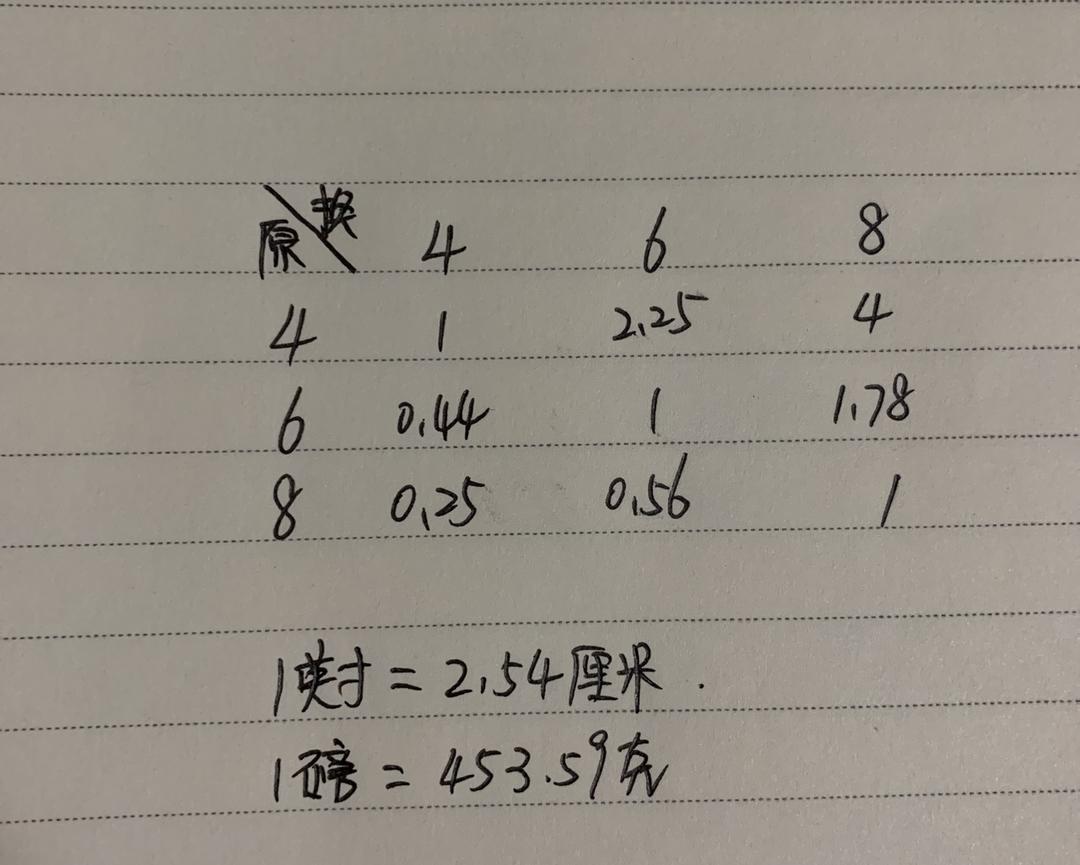 原\换 4 6 8
4 1 2.25 4
6 0.44 1 1.78
8 0.25 0.56 1
1英寸 = 2.54厘米.
1磅 = 453.59克